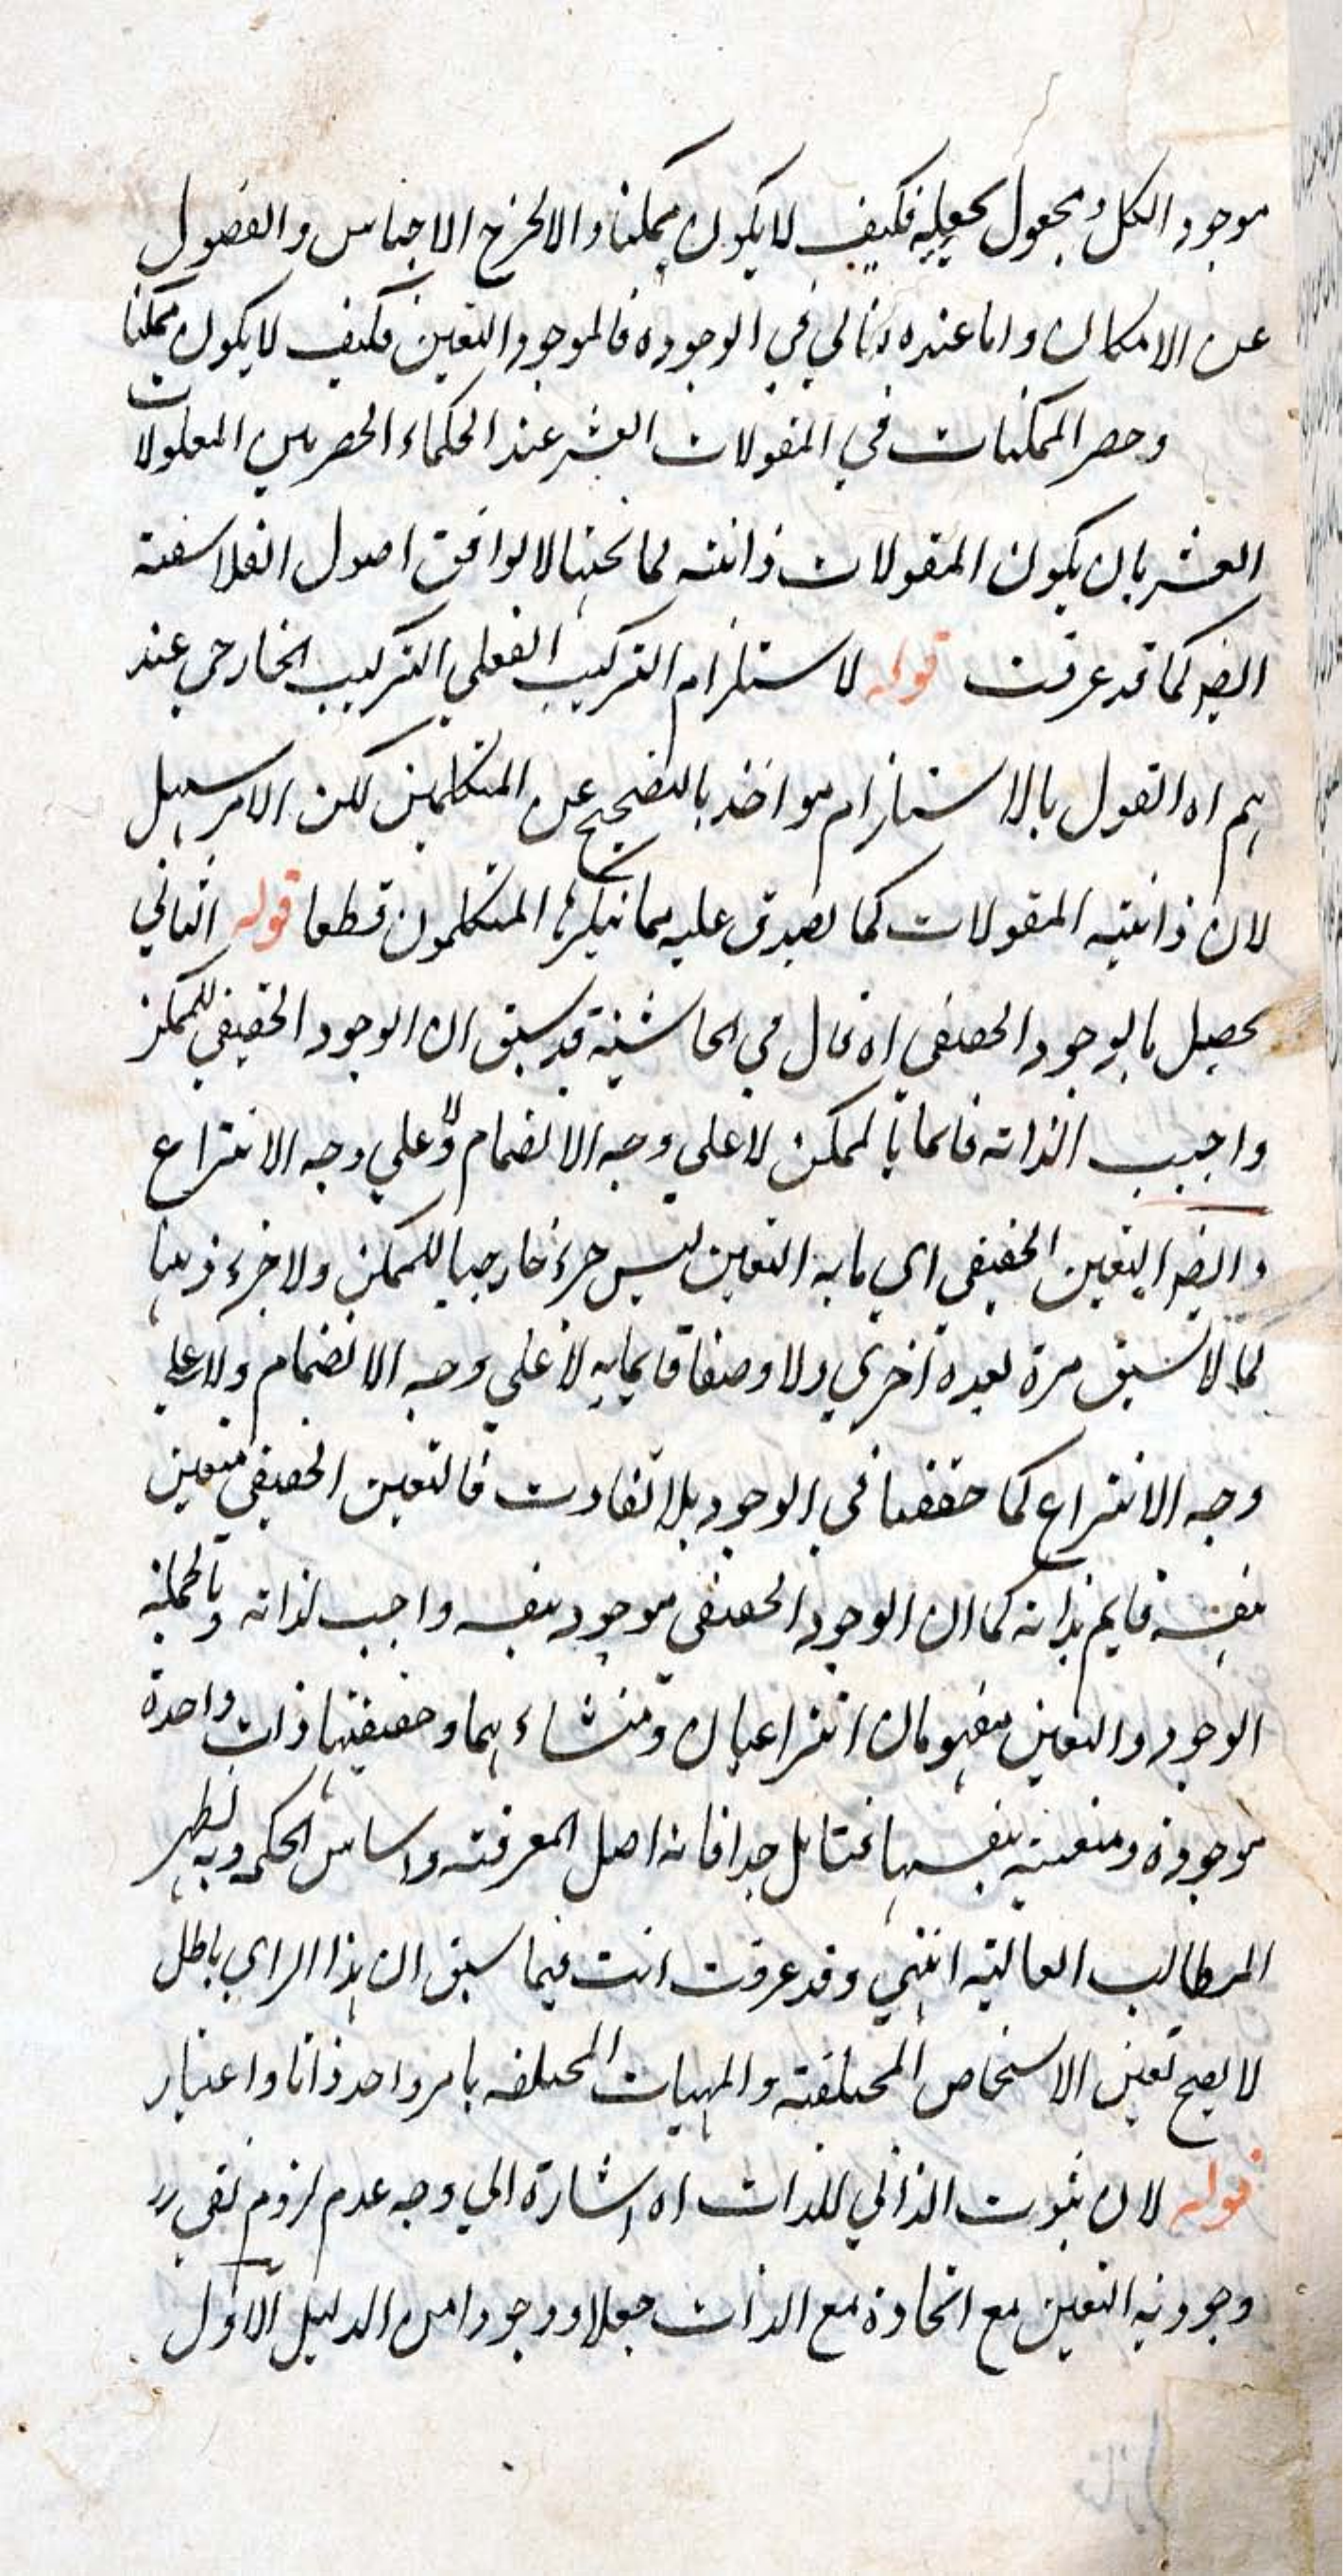 موجود الكل ومجعول بجعله فكيف لا يكون ممكنا والا لخرج الاجناس والفصول
عن الامكان واما عنده في الوجوده فالموجود التعين فكيف لا يكون ممكنا
وحصر الممكنات في المقولات العشر عند الحكماء الحصر بين المعلولات
العشر بان يكون المقولات ذاتية لما تحتها لا يوافق اصول الفلاسفة
ايضا كما قد عرفت قوله لاستلزام التركيب العقلي التركيب الخارجي عند
هم اه القول بالاستلزام مواخذ بالتصحيح عن المتكلمين لكن الامر سهل
لان ذاتية المقولات كما يصدق عليه مما ينكرها المتكلمون قطعا قوله الثاني
يحصل بالوجود الحقيقي اه قال في الحاشية قد سبق ان الوجود الحقيقي للممكن
واجب لذاته قائما بالممكن لا على وجه الانضمام ولا على وجه الانتزاع
وايضا التعين الحقيقي اي ما به التعين ليس جزء خارجيا للممكن ولا جزء ذهنيا
لما لا سبق مرة بعده اخرى ولا وصفا قايما به لا على وجه الانضمام ولا على
وجه الانتزاع كما حققنا في الوجود بلا تفاوت فالتعين الحقيقي متعين
بنفسه قايم بذاته كما ان الوجود الحقيقي موجود بنفسه واجب لذاته وبالجملة
الوجود والتعين مفهومان انتزاعيان ومنشاء هما وحقيقتهما ذات واحدة
موجودة ومتعينة بنفسها فتامل جدا فانه اصل المعرفة واساس الحكمة وبه يظهر
المطالب العالية انتهى وقد عرفت انت فيما سبق ان هذا الراي باطل
لا يصح تعين الاشخاص المختلفة والمهيات المختلفة بامر واحد ذاتا واعتبار
قوله لان ثبوت الذاتي للذات اه اشارة الى وجه عدم لزوم تقرر
وجودية التعين مع اتحاده مع الذات جعلا ووجودا من الدليل الاول